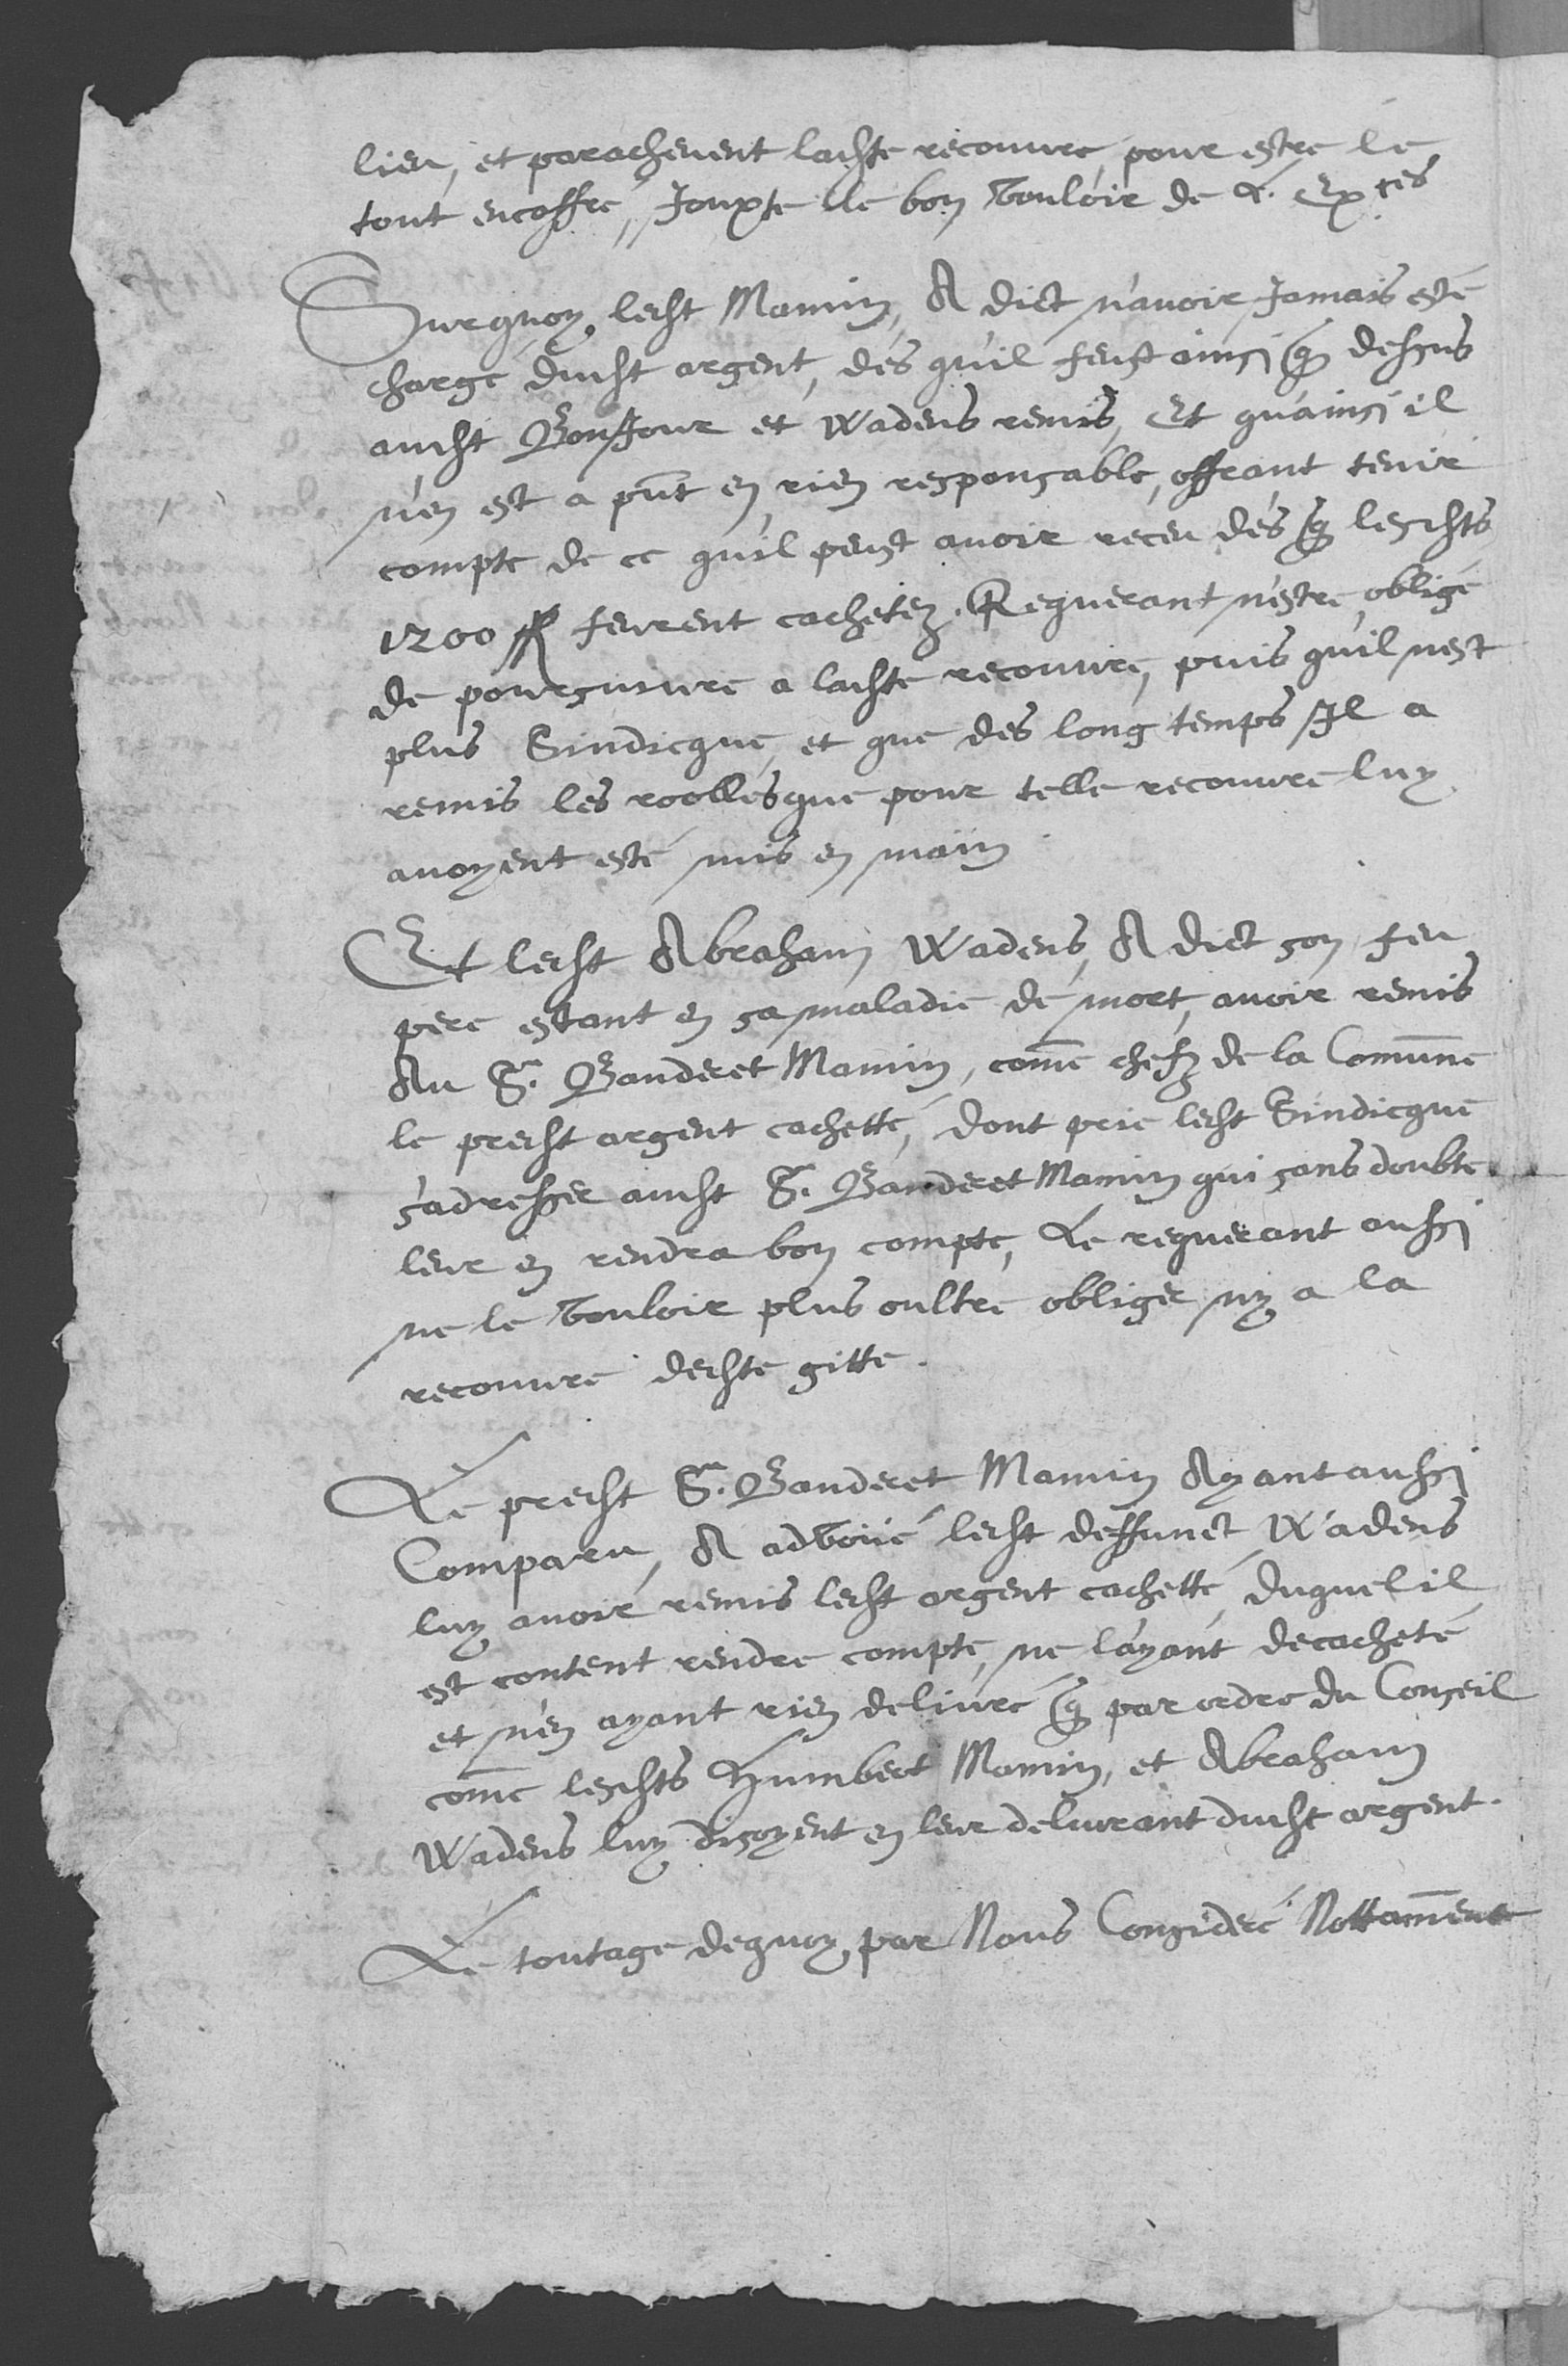 lieu, et parachevent lachte recouvre, pour estre le
tout encoffré, Jouxte le bon vouloir de L. Exces
Surquoy, lecht Mamin, A dict n'avoir Jamais esté
chargé ducht argent, dés qu'il feust ainsi q dessus
aucht Bonjour et Wadens remis, Et qu'ainsi il
n'en est a pnt en rien responsable, offrant tenir
compte de ce qu'il peust avoir receu dés q leschts
1200 ff feurent cachetez. Requerant n'estre obligé
de poursuivre a lachte recouvre, puis qu'il n'est
plus Sindicque, et que des long temps Il a
remis les roolles que pour telle recouvre luy
avoyent esté mis en main
Et lecht Abraham Wadens, A dict son feu
pere estant en sa maladie de mort, avoir remis
Au Sr. Banderet Mamin, come chefz de la Comune
le precht argent cachetté, dont prie lecht Sindicque
s'adresser aucht Sr. Banderet Mamin qui sans doubte
leur en rendra bon compte, Le requerant aussi
ne le vouloir plus oultre obliger ny a la
recouvre dechte gitte.
Le precht Sr. Banderet Mamin Ayant aussi
Comparu, A advoué lecht deffunct Wadens
luy avoir remis lecht argent cachetté, duquel il
est content rendre compte, ne l'ayant decacheté
et n'en ayant rien delivré q par ordre du Conseil
come leschts Humbert Mamin, et Abraham
Wadens luy disoyent en leur delivrant ducht argent.
Le toutage dequoy, par Nous Consideré Nottament